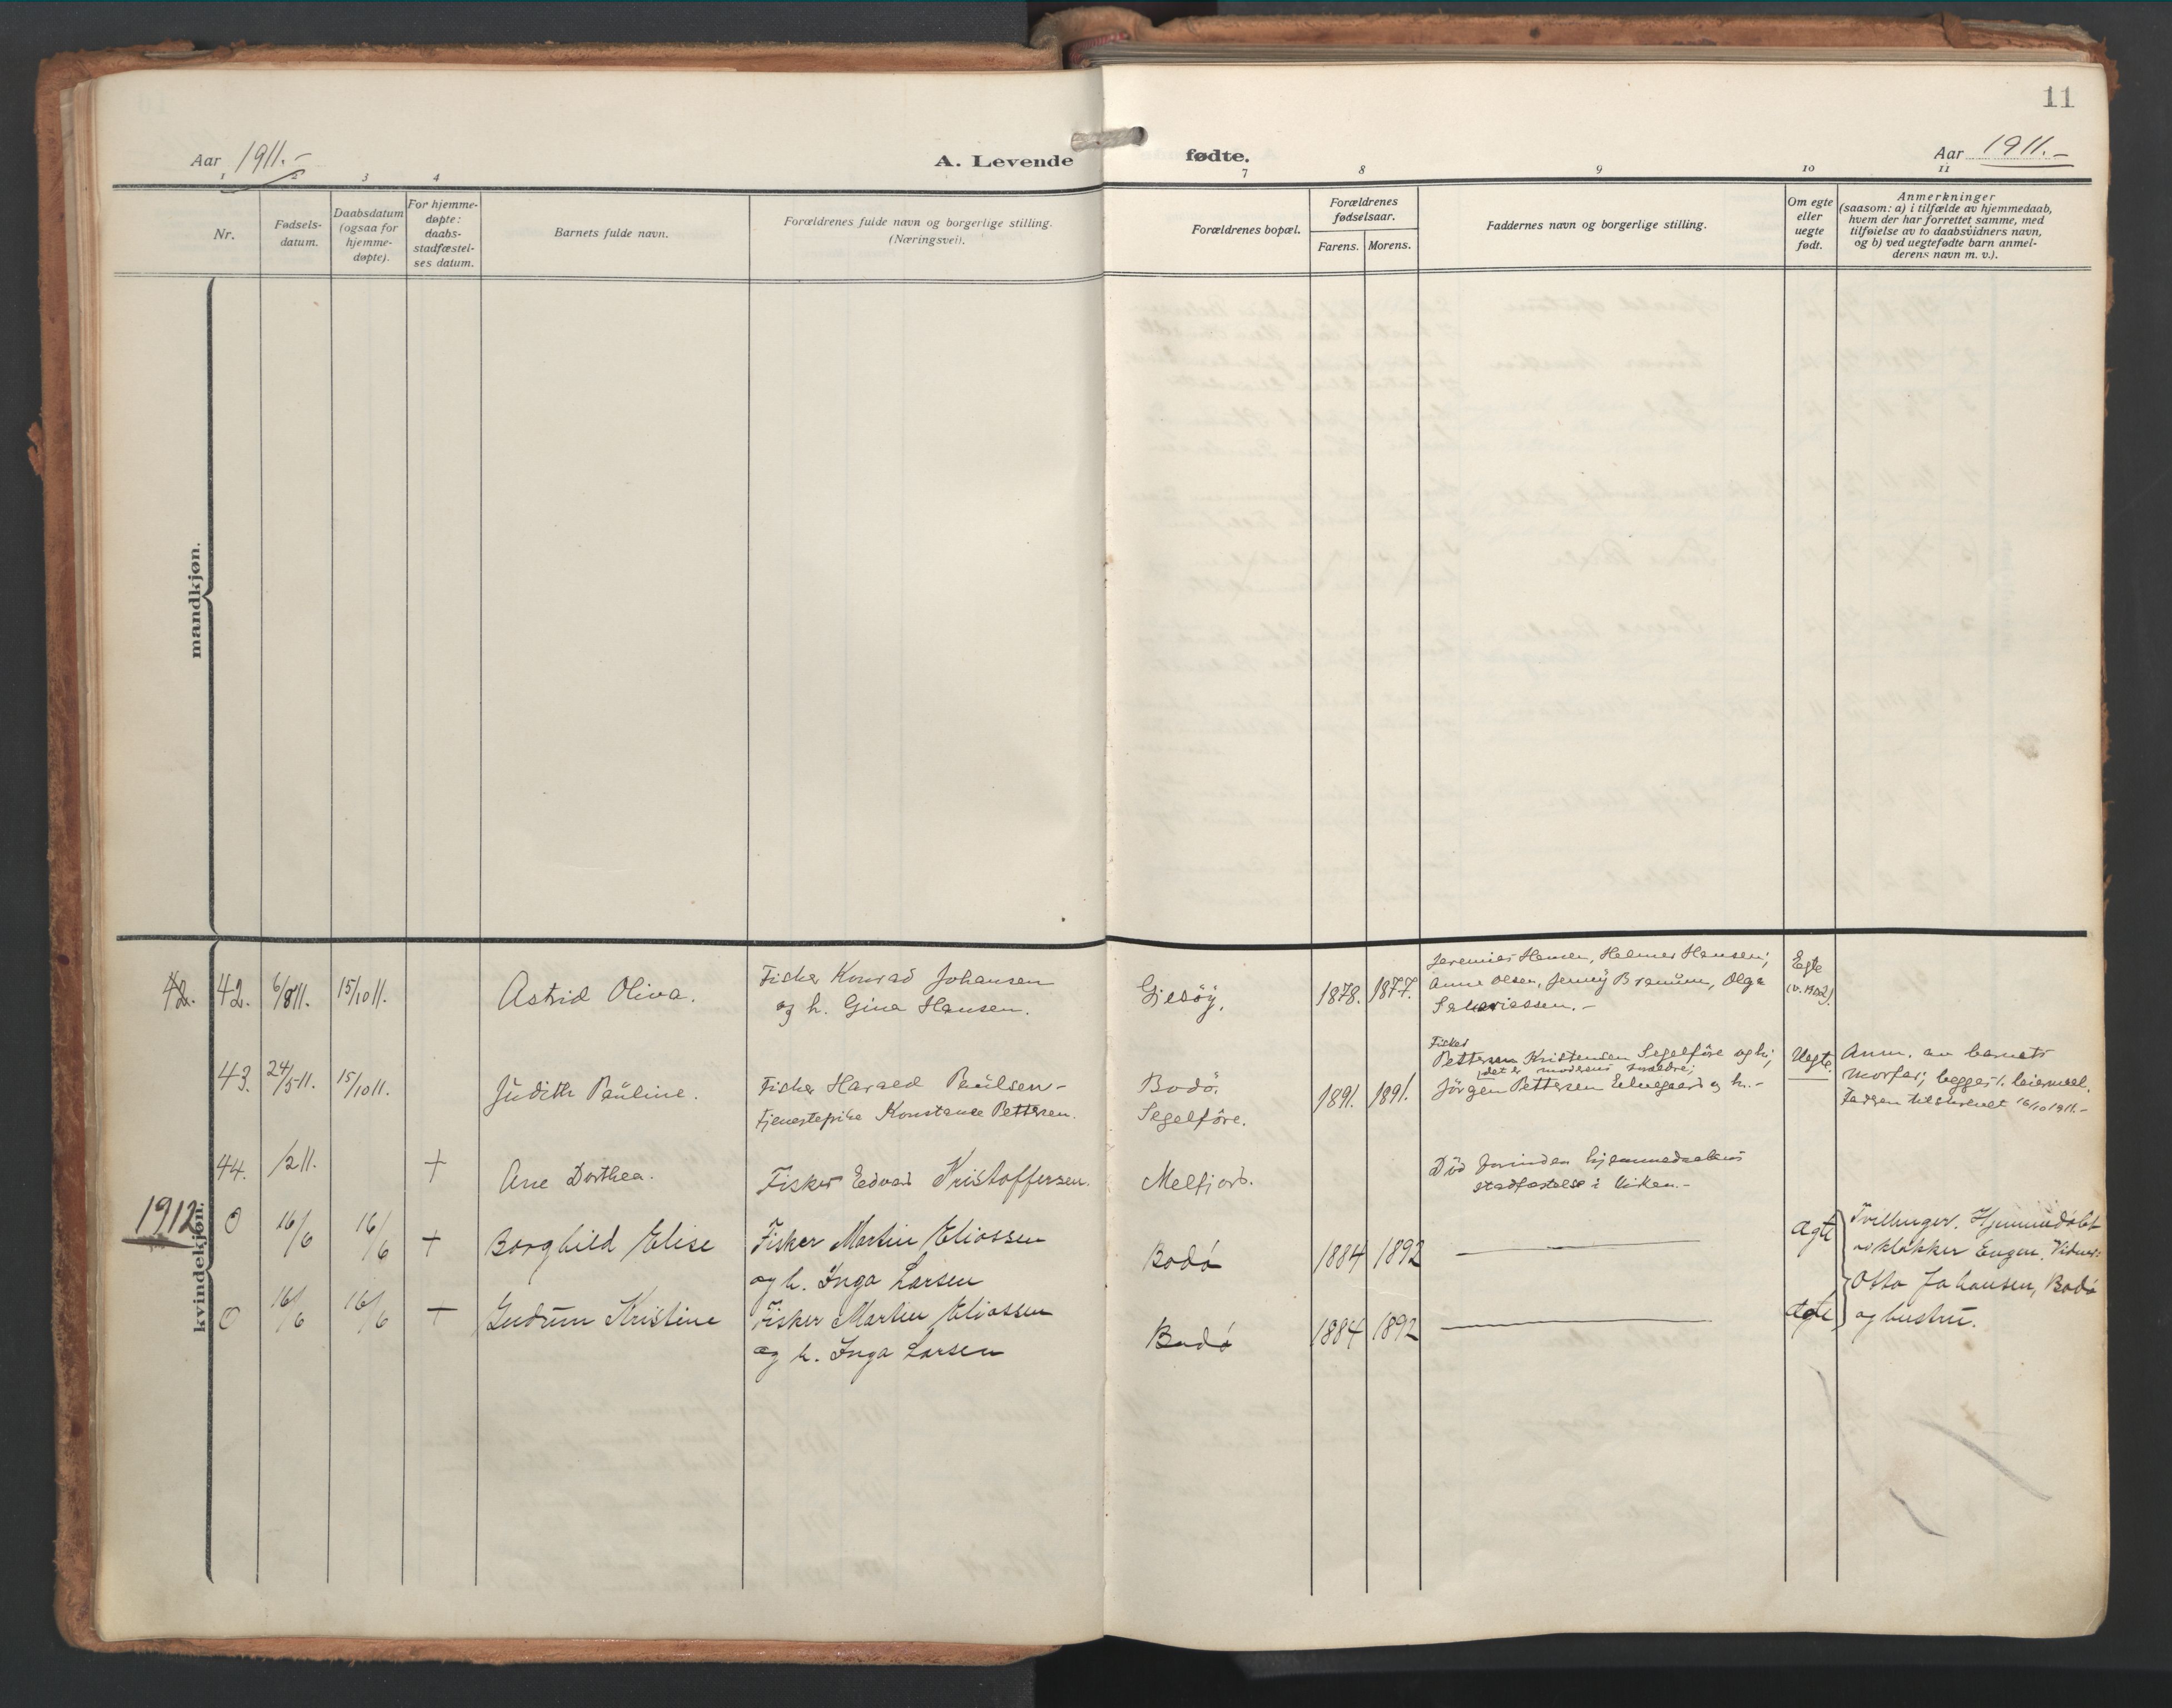 11
Aar 1911.-
A. Levende
fødte.
Aar 1911.-
1 2 3 4 7 8 9 10 11
Nr.
Fødsels-
datum.
Daabsdatum
(ogsaa for
hjemme-
døpte).
For hjemme-
døpte:
daabs-
stadfæstel-
ses datum.
Barnets fulde navn.
Forældrenes fulde navn og borgerlige stilling.
(Næringsvei).
Forældrenes bopæl.
Forældrenes
fødselsaar.
Farens. Morens.
Faddernes navn og borgerlige stilling.
Om egte
eller
uegte
født.
Anmerkninger
(saasom: a) i tilfælde av hjemmedaab,
hvem der har forrettet samme, med
tilføielse av to daabsvidners navn,
og b) ved uegtefødte barn anmel-
derens navn m. v.).
mandkjøn.
kvindekjøn.
42. 42. 6/8 11. 15/10 11.
Astrid Oliva.
Fisker Konrad Johansen
og h. Gina Hansen.
Gjesöy.
1878. 1877.
Jeremias Hansen, Helmer Hansen;
Anne Olsen, Jenny Brenunn, Olga
Sakariassen.-
Egte
(v. 1902).
43. 24/5 11. 15/10 11.
Judith Pauline.
Fisker Harald Paulsen-
Tjenestepike Konstance Pettersen.
Bodö.
Segelföre.
1891. 1891.
Fisker
Petter Kristensen Segelföre og h;
det er moderens;
Jörgen Pettersen og h.-
Uegte.
Anm. av barnets
morfar; begges 1. leiermaal.
Faderen tilskrevet 16/10 1911.-
44. /2 11. +
Ane Dorthea.
Fisker Edvard Kristoffersen.
Melfjord.
Död forinden hjemmedaabens
stadfæstelse i kirken.-
1912
0 16/6 16/6 +
Borghild Elise
Fisker Martin Eliassen
og h. Inga Larsen
Bodø
1884 1892
ægte
Tvillinger. Hjemmedøbt
av klokker Engen. Vidner:
Otto Johansen, Bodø
og hustru.
0 16/6 16/6 +
Gudrun Kristine
Fisker Martin Eliassen
og h. Inga Larsen
Bodø
1884 1892
ægte